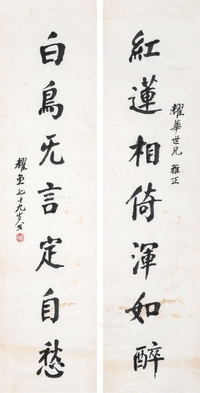 紅蓮相倚渾如醉
耀華世兄 雅正
白鳥无言定自愁
七十九岁书